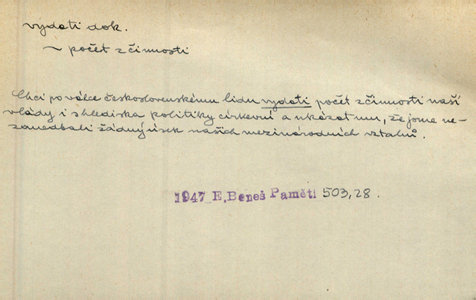 vydati dok.
~ počet z činnosti
Chci po válce československému lidu vydati počet z činnosti naší
vlády i s hlediska politiky církevní a ukázat mu, že jsme ne-
zanedbali žádný úsek našich mezinárodních vztahů.
1947 E. Beneš Paměti 503,28.